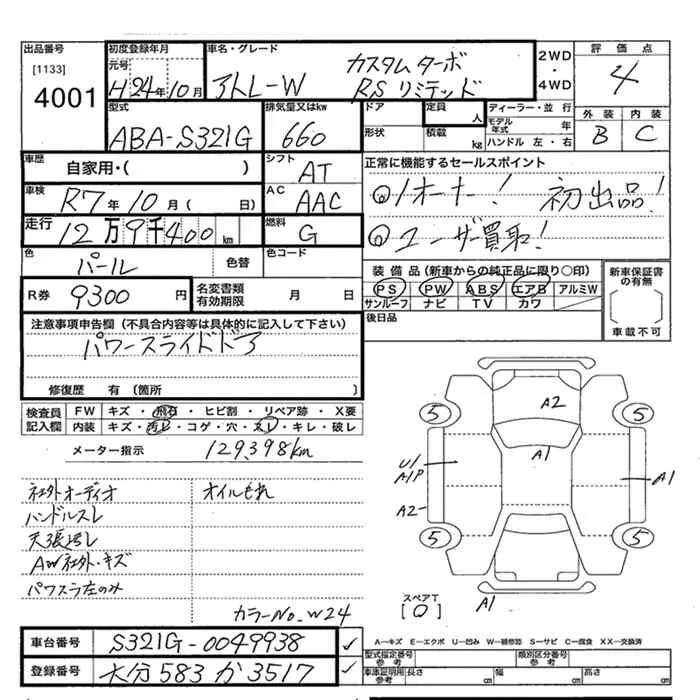 出品番号
[1133]
4001
初度登録年月
元号
H24年10月
車名・グレード
カスタムターボ
アトレーW RSリミテッド
2WD
・
4WD
評価点
4
外装 内装
B C
型式
ABA-S321G
排気量又はkw
660
ドア
形状
定員
人
積載
kg
ディーラー・並行
モデル年式 年
ハンドル 左・右
車歴
自家用・( )
シフト
AT
車検
R7年10月( 日)
AC
AAC
走行
12万9千400km
燃料
G
正常に機能するセールスポイント
◎1オーナー! 初出品!
◎ユーザー買取!
色
パール
色替
色コード
R券 9300円
名変書類有効期限 月 日
装備品(新車からの純正品に限り〇印)
PS PW ABS エアB アルミW
サンルーフ ナビ TV カワ
新車保証書の有無
車載不可
後日品
注意事項申告欄(不具合内容等は具体的に記入して下さい)
パワースライドドア
修復歴 有(箇所 )
検査員記入欄
FW キズ・飛石・ヒビ割・リペア跡・X要
内装 キズ・汚レ・コゲ・穴・スレ・キレ・破レ
メーター指示 129,398km
社外オーディオ オイルもれ
ハンドルスレ
天張汚レ
AW社外・キズ
パワスラ左のみ
カラーNo. W24
5 A2 5
U1 A1 A1
A1P
A2
5 5
スペアT
[0]
A1
車台番号 S321G-0049938
登録番号 大分583か3517
A―キズ E―エクボ U―凹み W―補修跡 S―サビ C―腐食 XX―交換済
型式指定番号 参考
類別区分番号 参考
車庫証明用 参考 長さ cm 幅 cm 高さ cm